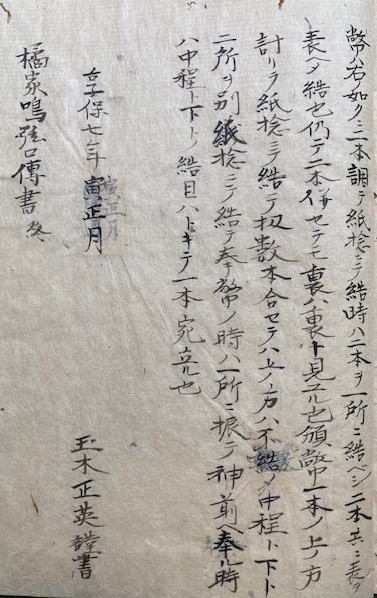 幣ハ右ノ如ク三本調テ紙捻ニテ結時ハ二本ヲ一所ニ結ベシ二本共ニ表ヲ
表ヘタ結也仍テ二本併セテモ裏ハ裏ト見ユル也頒幣一本ノ上ノ方
計リヲ紙捻ニテ結テ扨数本合セテハ上ノ方ハ不結〆中程ト下ト
二所ヲ別紙捻ニテ結テ奉幣ノ時ハ一所ニ振テ神前ヘ奉ル時
ハ中程ト下トノ結目ハトキテ一本宛立ル也
享保七年寅正月
玉木正英謹書
橘家鳴弦口傳書終